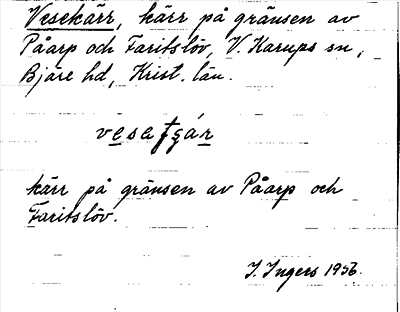 Vesekärr, kärr på gränsen av
Påarp och Faritslöv, V. Karups sn,
Bjäre hd, Krist. län.
kärr på gränsen av Påarp och
Faritslöv.
I. Ingers 1956.